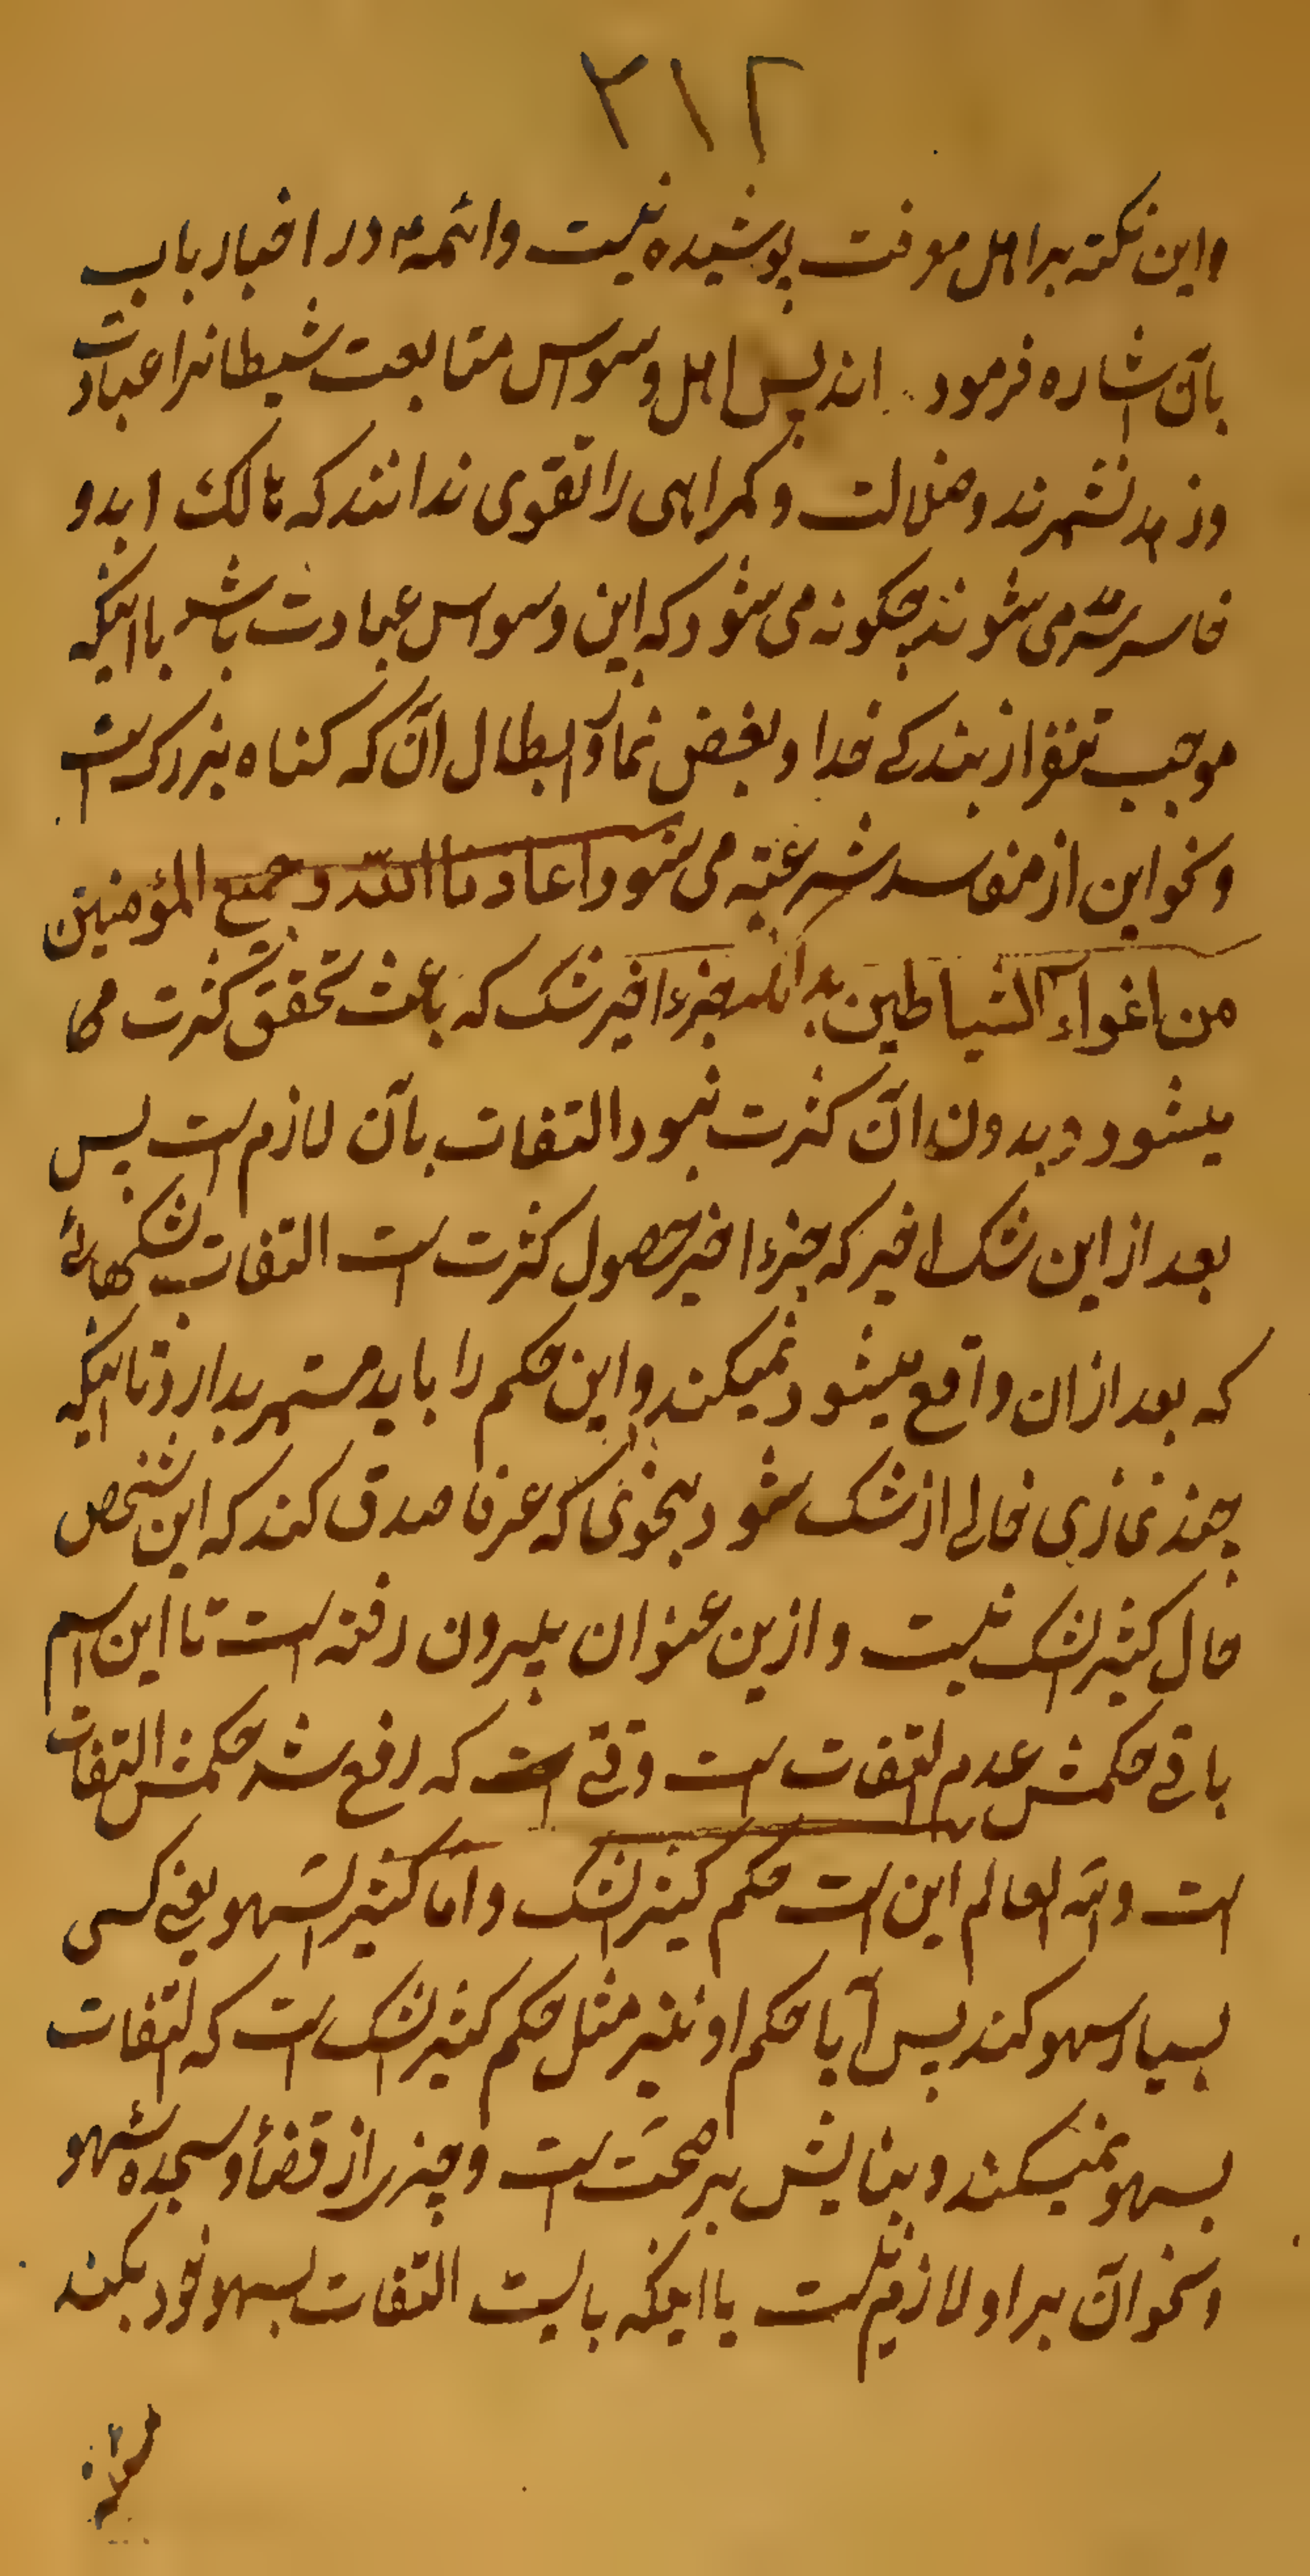 ۳۱۲
واین نکته بر اهل معرفت پوشیده نیست وائمه ع در اخبار باب
بآن اشاره فرموده اند پس اهل وسواس متابعت شیطانرا عبادت
وزهد نشمرند وضلالت وکمراهی را تقوی ندانند که هالک ابد و
خاسر سرمد می شوند چکونه می شود که این وسواس عبادت باشد با اینکه
موجب تنفر از بندکی خدا وبغض نماز وابطال آن که کناه بزرکست
ونحو این از مفاسد شرعیّه می شود اعاذنا اللّه وجمیع المؤمنین
من اغواء الشیاطین بدانکه جزء اخیر شک که باعث تحقق کثرت می
میشود وبدون آن کثرت نبود التفات بآن لازم است پس
بعد از این شک اخیر که جزء اخیر حصول کثرت است التفات بشکهائی
که بعد از ان واقع میشود نمیکند واین حکم را باید مستمر بدارد تا اینکه
چند نمازی خالی از شک شود بنحوی که عرفا صدق کند که این شخص
حال کثیر الشک نیست وازین عنوان بیرون رفته است تا این اسم
باقی حکمش عدم التفات است وقتی است که رفع شد حکمش التفات
است واللّه العالم این است حکم کثیر الشک واما کثیر السّهو یعنی کسی
بسیار سهو کند پس آیا حکم او نیز مثل حکم کثیر الشک است که التفات
بسهو نمیکند وبنایش بر صحّت است وچیزی از قضاء وسجده سهو
ونحو آن بر او لازم نیست یا اینکه بایست التفات بسهو خود بکند